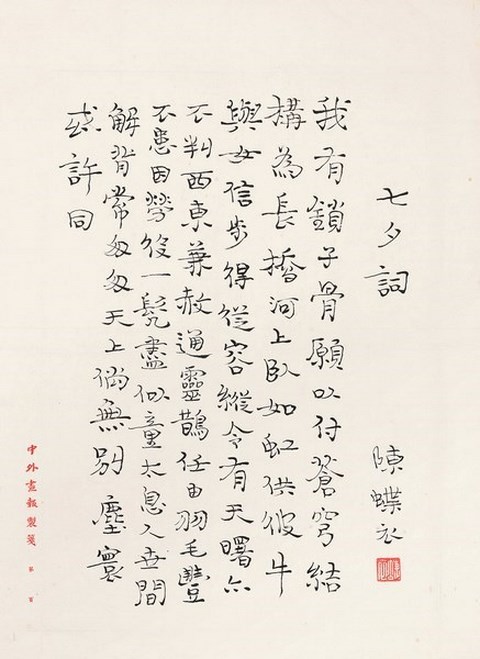 七夕詞
陳蝶衣
我有鎖子骨願以付蒼穹結
構為長橋河上臥如虹供彼牛
與女信步得從容縱令有天曙亦
不判西東兼赦通靈鵲任由羽毛豐
不患因勞役一髡盡似童太息人世間
解背常匆匆天上倘無別塵寰
或許同
中外畫報製箋 第 頁